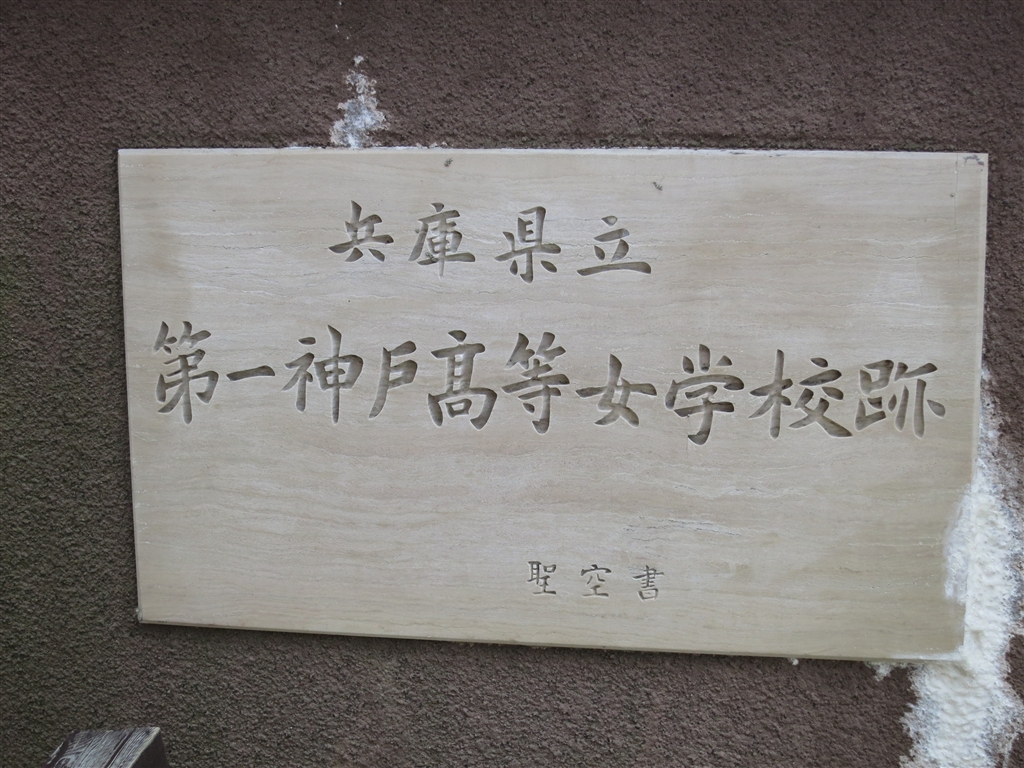 兵庫県立
第一神戸髙等女学校跡
聖空書